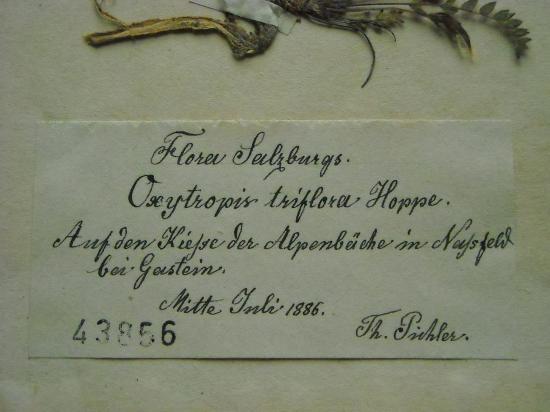 Flora Salzburgs.
Oxytropis triflora Hoppe.
Auf den Kieße der Alpenbäche in Naßfeld
bei Gastein.
Mitte Juli 1886.
43856 Th. Pichler.